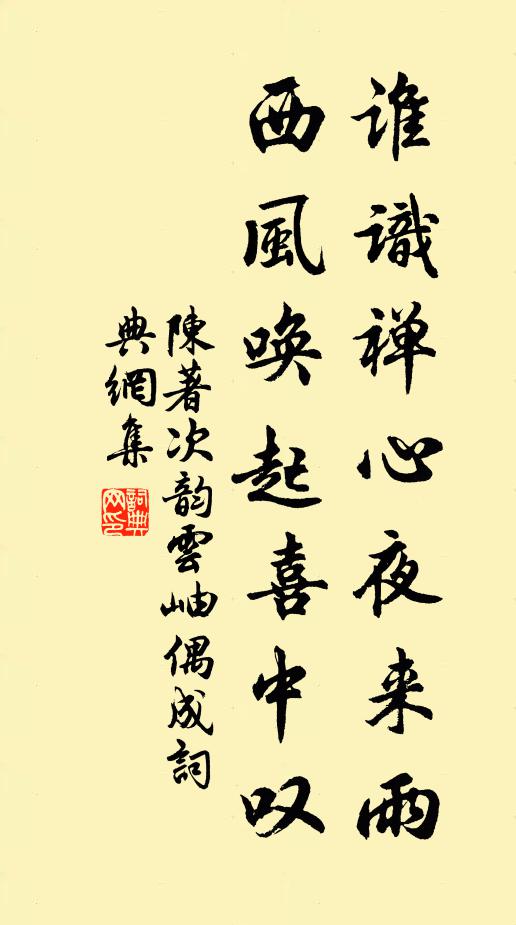 谁識禅心夜来雨
西風唤起喜中叹
陳著次韵雲岫偶成詞
典網集
詞典网印